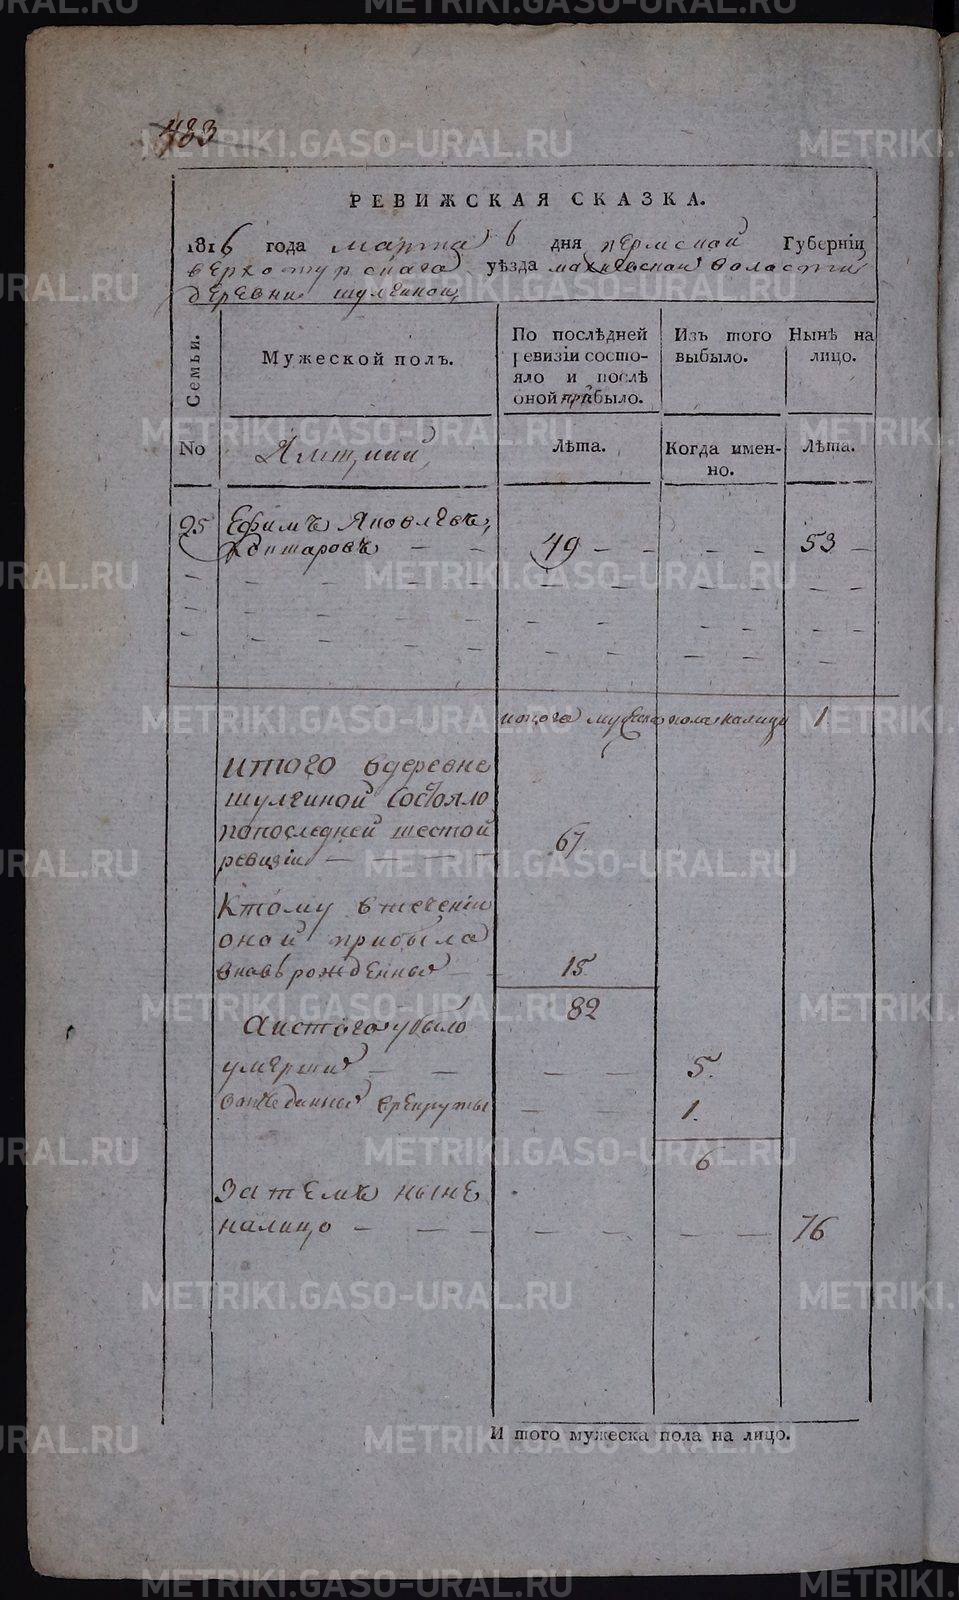 483
РЕВИЖСКАЯ СКАЗКА.
1816 года марта 6 дня пермской Губерніи
верхотурскаго уѣзда махневской воласти
деревни шулгиной
Семьи.
Мужеской полъ.
По послѣдней
ревизіи состо-
яло и послѣ
оной прибыло.
Изъ того
выбыло.
Ныне на
лицо.
No
Лѣта.
Когда имен-
но.
Лѣта.
25 Ефимъ Яковлевъ,
49 53
итого мужеска пола налицо 1
итого вдеревне
шулгиной состояло
попоследней шестой
ревизіи 67.
Ктому втеченіи
оной прибыла
вновь рожденныя 15.
82
Аистого убыло
умершия 5.
рекруты 1.
6
Затемъ ныне
налицо 76
И того мужеска пола на лицо.
METRIKI.GASO-URAL.RU